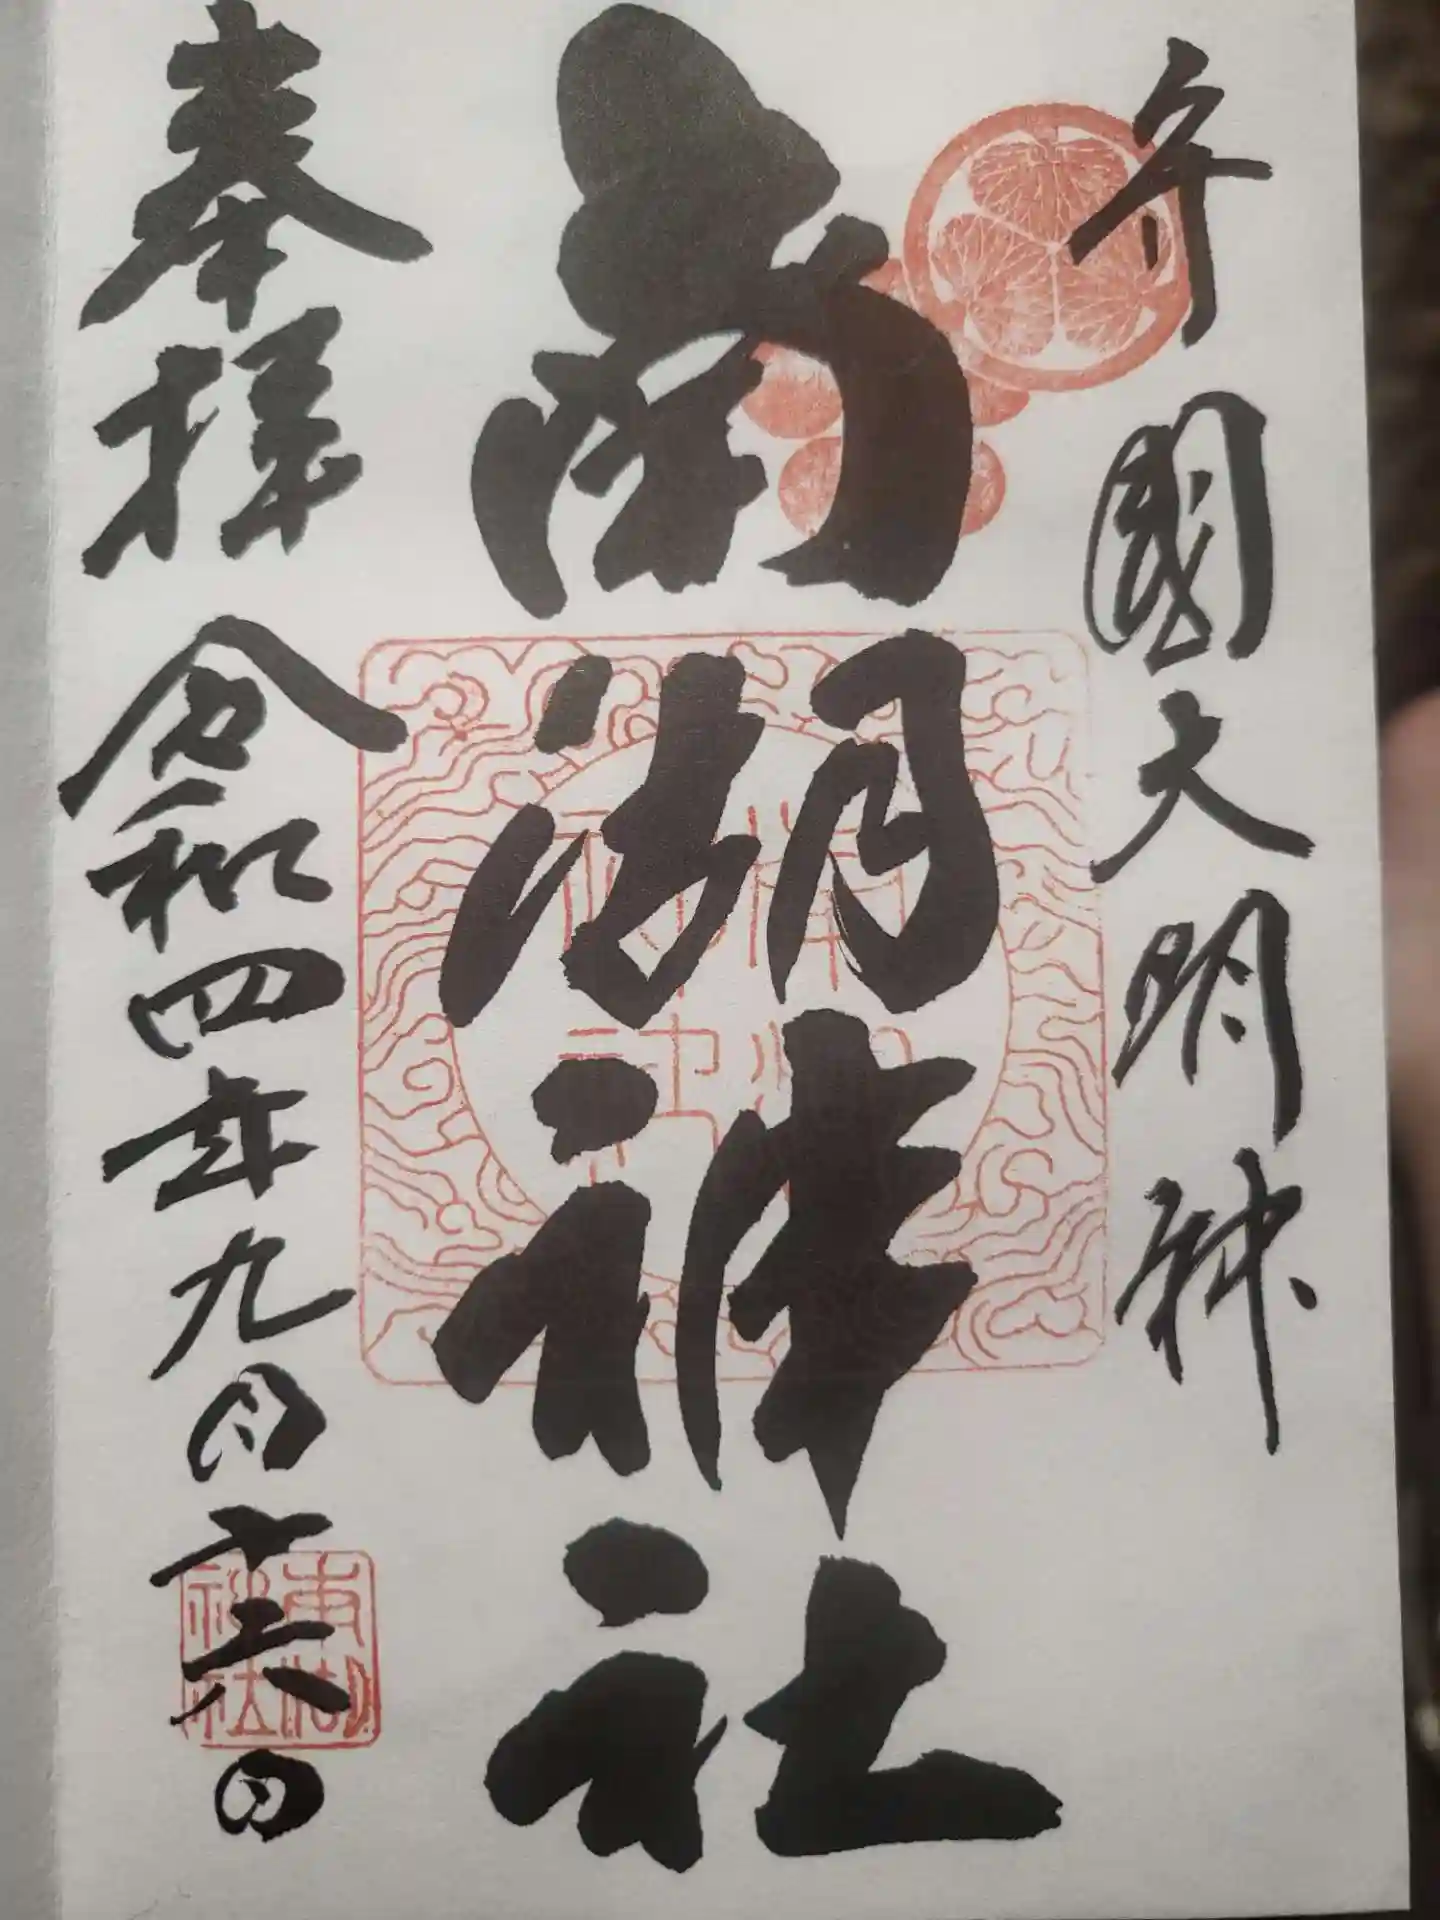 守國大明神
南湖神社
奉拝 令和四年九月十六日
南湖神社
南湖神社